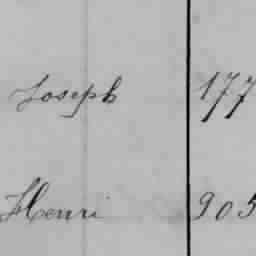 Joseph 177
Henri 905